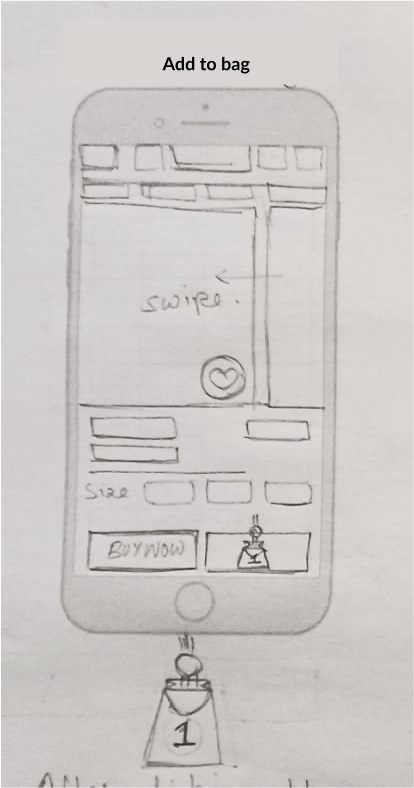 Add to bag
swipe.
Size
BUY NOW
1
1